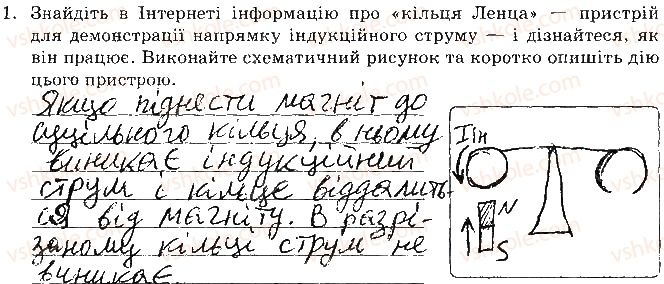 1. Знайдіть в Інтернеті інформацію про «кільця Ленца» — пристрій
для демонстрації напрямку індукційного струму — і дізнайтеся, як
він працює. Виконайте схематичний рисунок та коротко опишіть дію
цього пристрою.
Якщо піднести магніт до
суцільного кільця, в ньому
виникає індукційний
струм і кільце віддалить-
ся від магніту. В разрі-
заному кільці струм не
виникає.
Iін
N
S